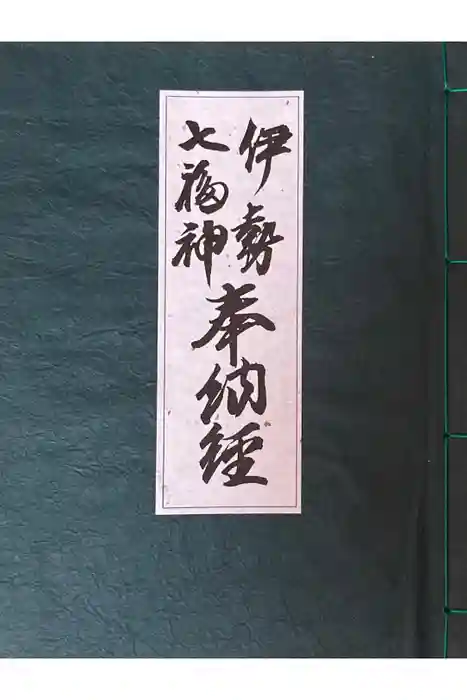 伊勢
七福神
奉納経